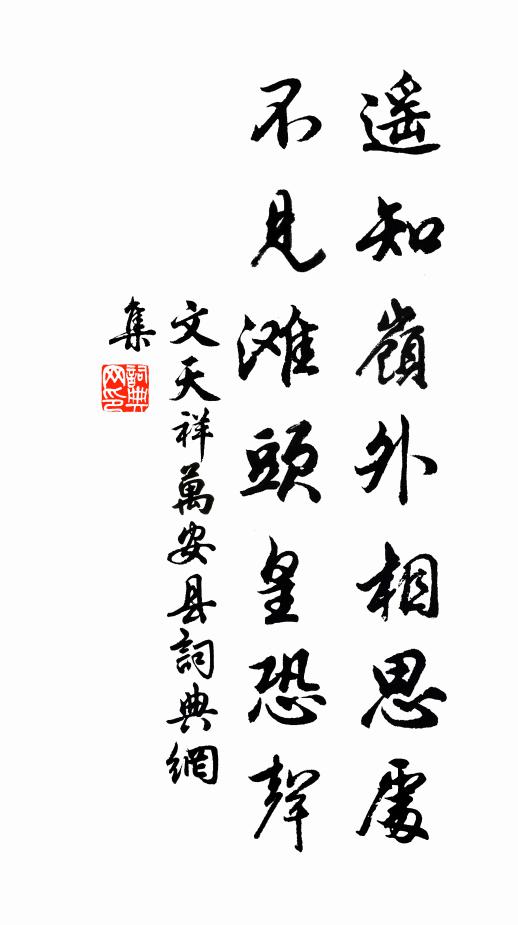 遥知嶺外相思處
不見滩頭皇恐聲
文天祥萬安县詞典網
集
詞典
网印